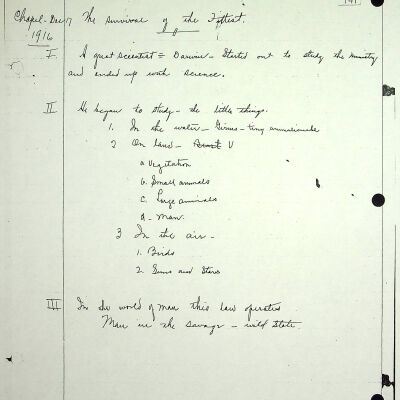 141
Chapel - Dec 17 The survival of the Fittest.
1916
I. A great scientist = Darwin - Started out to study the ministry
and ended up with science.
II He began to study - the little things.
1. In the water - Germs - tiny animalcule
2 On land - V
a Vegetation
b. Small animals
c. Large animals
d - Man.
3 In the air -
1. Birds
2. Suns and Stars
III In the world of man this law operates
Man in the savage - wild State.